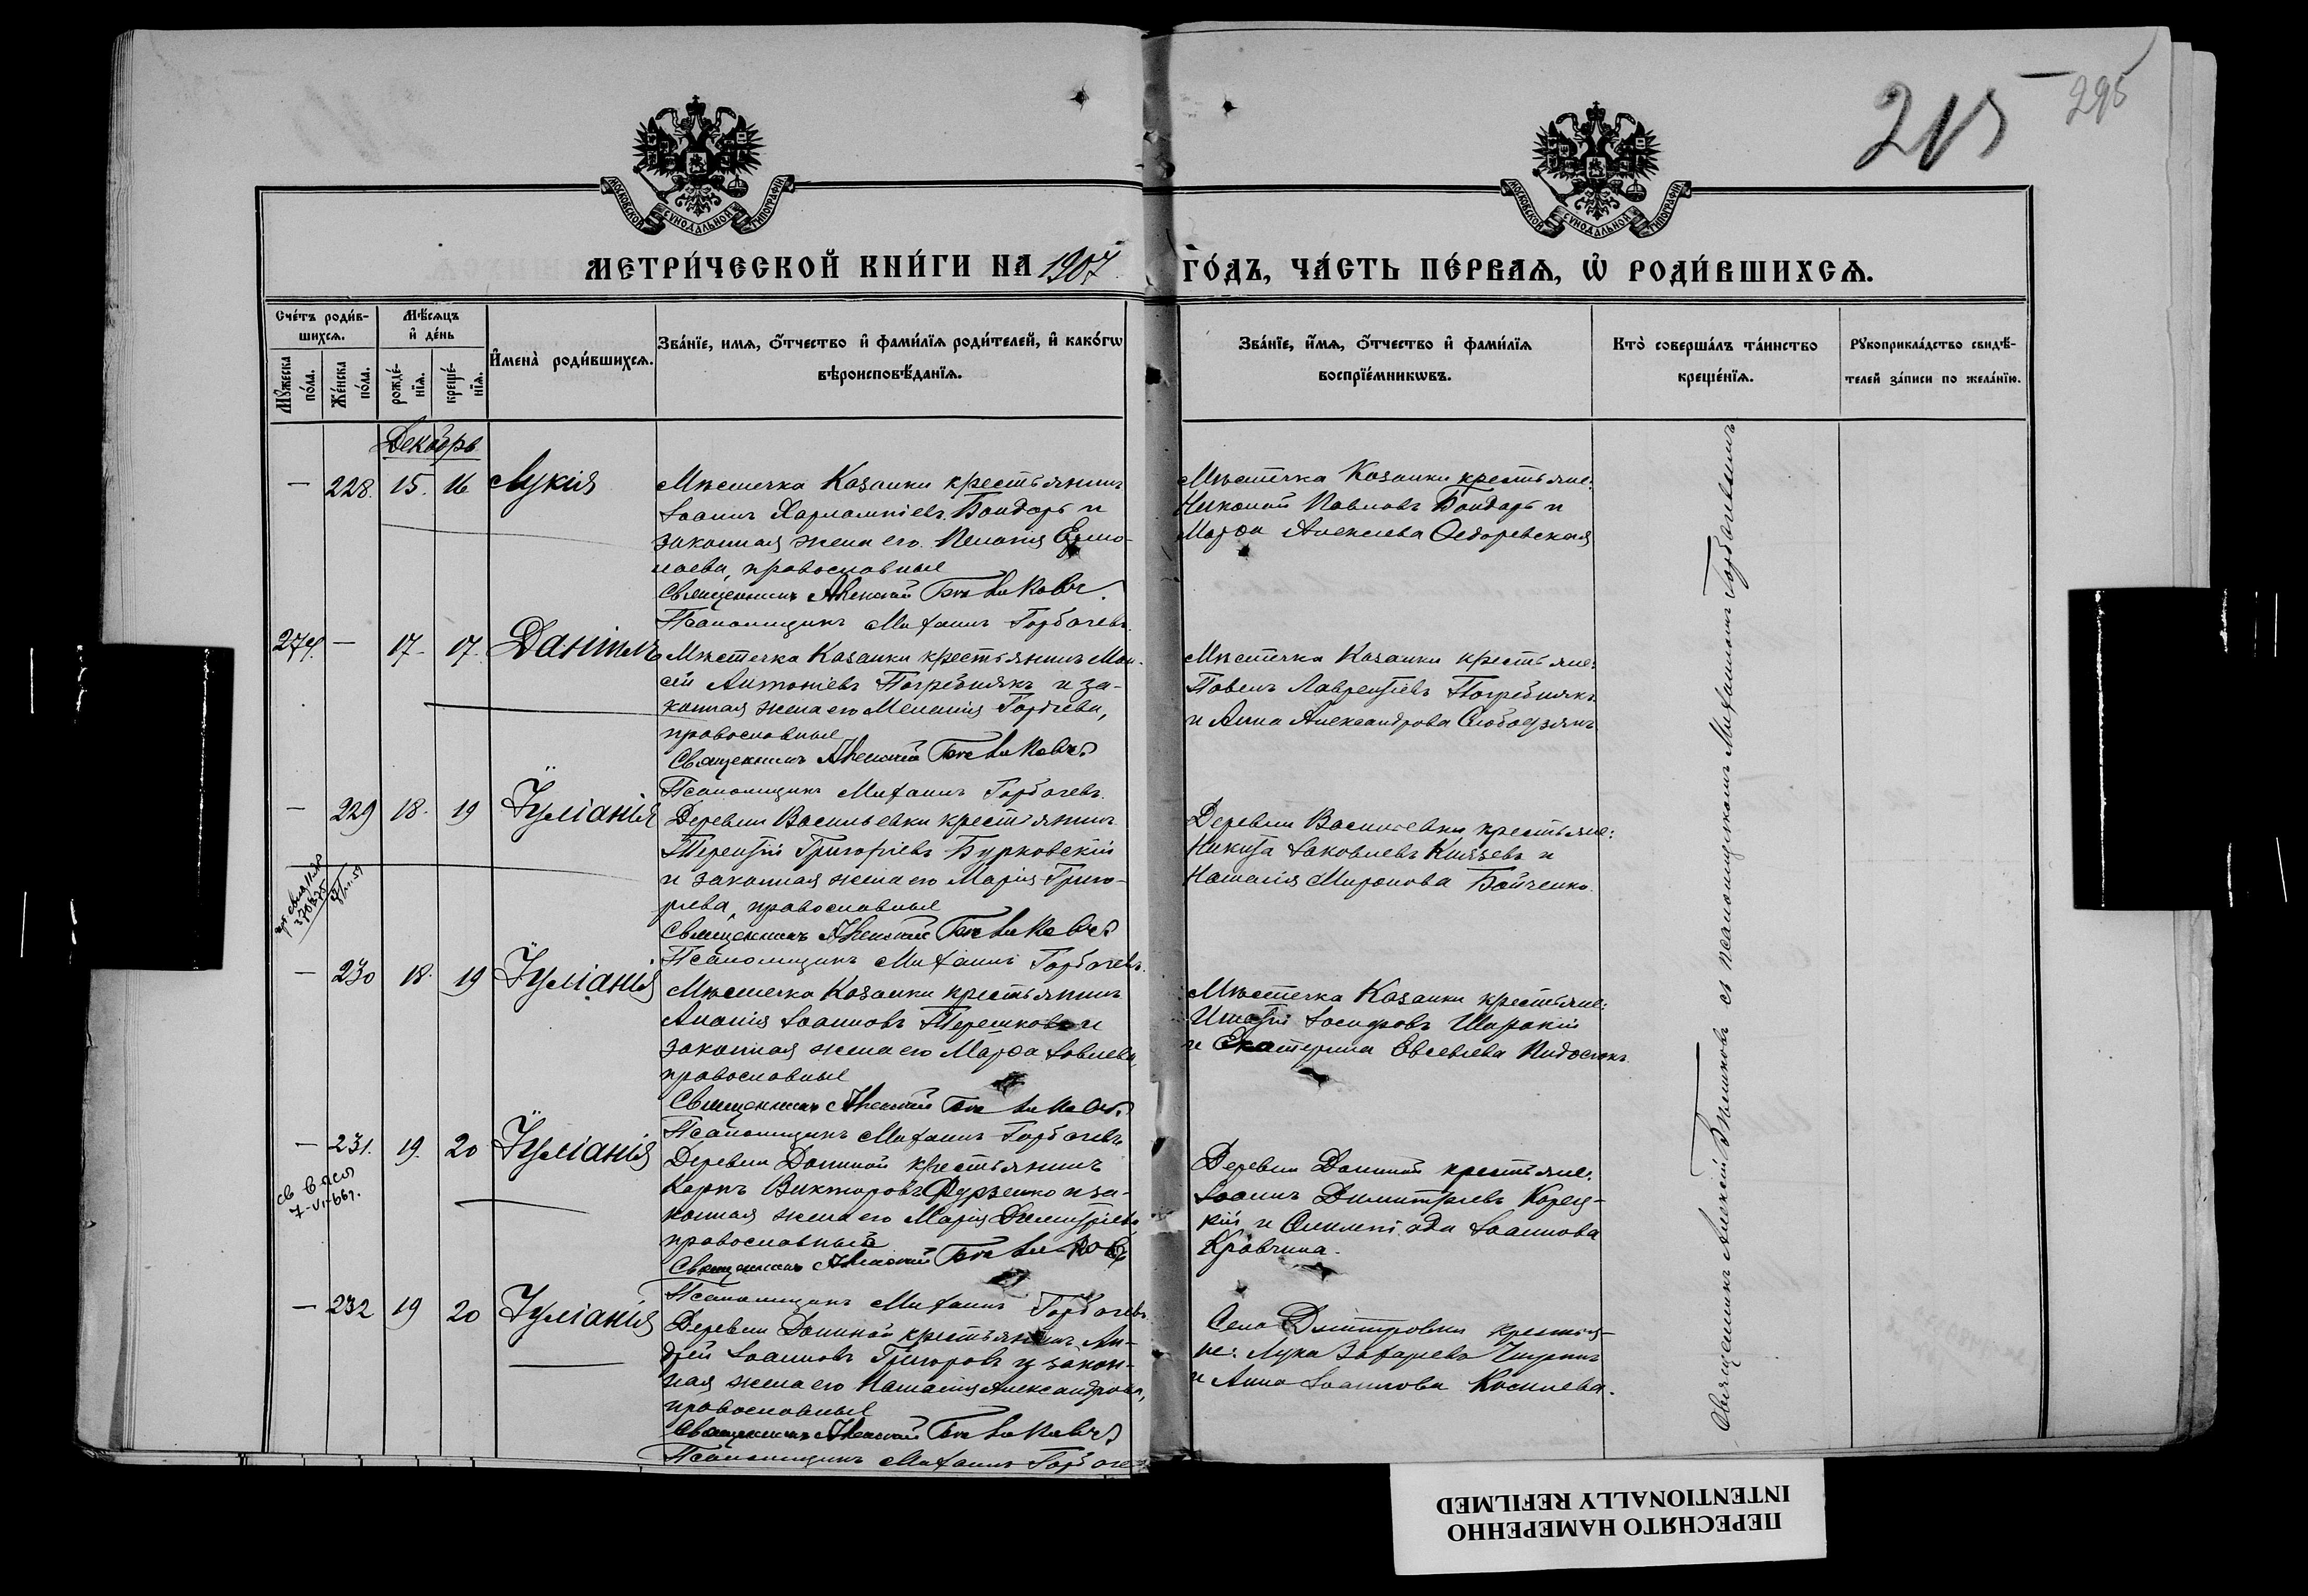 215 — 295
МОСКОВСКОЙ СѴНОДАЛЬНОЙ ТИПОГРАФІИ
МОСКОВСКОЙ СѴНОДАЛЬНОЙ ТИПОГРАФІИ
МЕТРИ́ЧЕСКОЙ КНИ́ГИ НА 1907 ГО́ДЪ, ЧА́СТЬ ПЕ́РВАѦ, Ѡ҆ РОДИ́ВШИХСѦ.
Сче́тъ роди́в-
шихсѧ.
Мꙋ́жеска
по́ла.
Же́нска
по́ла.
Мѣ́сѧцъ
и҆ де́нь
рожде́-
нїѧ.
креще́-
нїѧ.
И҆мена̀ роди́вшихсѧ.
Зва́нїе, имѧ, ѻ҆́тчество и҆ фами́лїѧ роди́телей, и҆ како́гѡ
вѣроисповѣ́данїѧ.
Зва́нїе, и҆́мѧ, ѻ҆́тчество и҆ фами́лїѧ
воспрїе́мникѡвъ.
Кто̀ соверша́лъ та́инство
креще́нїѧ.
Рꙋкоприкла́дство свидѣ́-
телей за́писи по жела́нїю.
Декабрь
— 228. 15. 16 Лукія
Мѣстечка Казанки крестьянинъ
Іоаннъ Харлампіевъ Бондарь и
законная жена его Пелагія Ермо-
лаева, православные
Священникъ Алексій
Псаломщикъ Михаилъ Горбачевъ.
Мѣстечка Казанки крестьяне:
Николай Павловъ Бондарь и
Марѳа Алексіева Ѳедоревская
274. — 17 17. Даніилъ
Мѣстечка Казанки крестьянинъ Мои-
сей Антоніевъ Погребнякъ и за-
конная жена его Меланія Гордіева,
православные
Священникъ Алексій
Псаломщикъ Михаилъ Горбачевъ.
Мѣстечка Казанки крестьяне:
Павелъ Лаврентіевъ Погребнякъ
и Анна Александрова Слободзянъ
— 229 18. 19 Іуліанія
Деревни Васильевки крестьянинъ
Терентій Григоріевъ Бурковскій
и законная жена его Марія Григо-
ріева, православные
Священникъ Алексій
Псаломщикъ Михаилъ Горбачевъ.
Деревни Васильевки крестьяне:
Никита Іаковлевъ Князевъ и
Наталія Миронова Бойченко.
— 230 18. 19 Іуліанія
Мѣстечка Казанки крестьянинъ
Ананія Іоанновъ Терешковъ и
законная жена его Марѳа Іовлева,
православные
Священникъ Алексій
Псаломщикъ Михаилъ Горбачевъ
Мѣстечка Казанки крестьяне:
Игнатій Іосифовъ Широкій
и Екатерина Евсевіева
— 231. 19. 20 Іуліанія
7-VI-66г.
Деревни Долиной крестьянинъ
Карпъ Викторовъ Фурзенко и за-
конная жена его Марія Димитріева,
православные
Священникъ Алексій
Псаломщикъ Михаилъ Горбачевъ.
Деревни Долиной крестьяне:
Іоаннъ Димитріевъ Корец-
кій и Олимпіада Іоаннова
Кравчина.
— 232 19 20 Іуліанія
Деревни Долиной крестьянинъ Ан-
дрей Іоанновъ Григоровъ и закон-
ная жена его Наталія Александрова,
православные
Священникъ Алексій
Псаломщикъ Михаилъ Горбачев
Села Дмитровки крестья-
не: Лука Захаріевъ
и Анна Іоаннова Киселева.
Священникъ Алексій съ псаломщикомъ Михаиломъ Горбачевымъ
ПЕРЕСНЯТО НАМЕРЕННО
INTENTIONALLY REFILMED